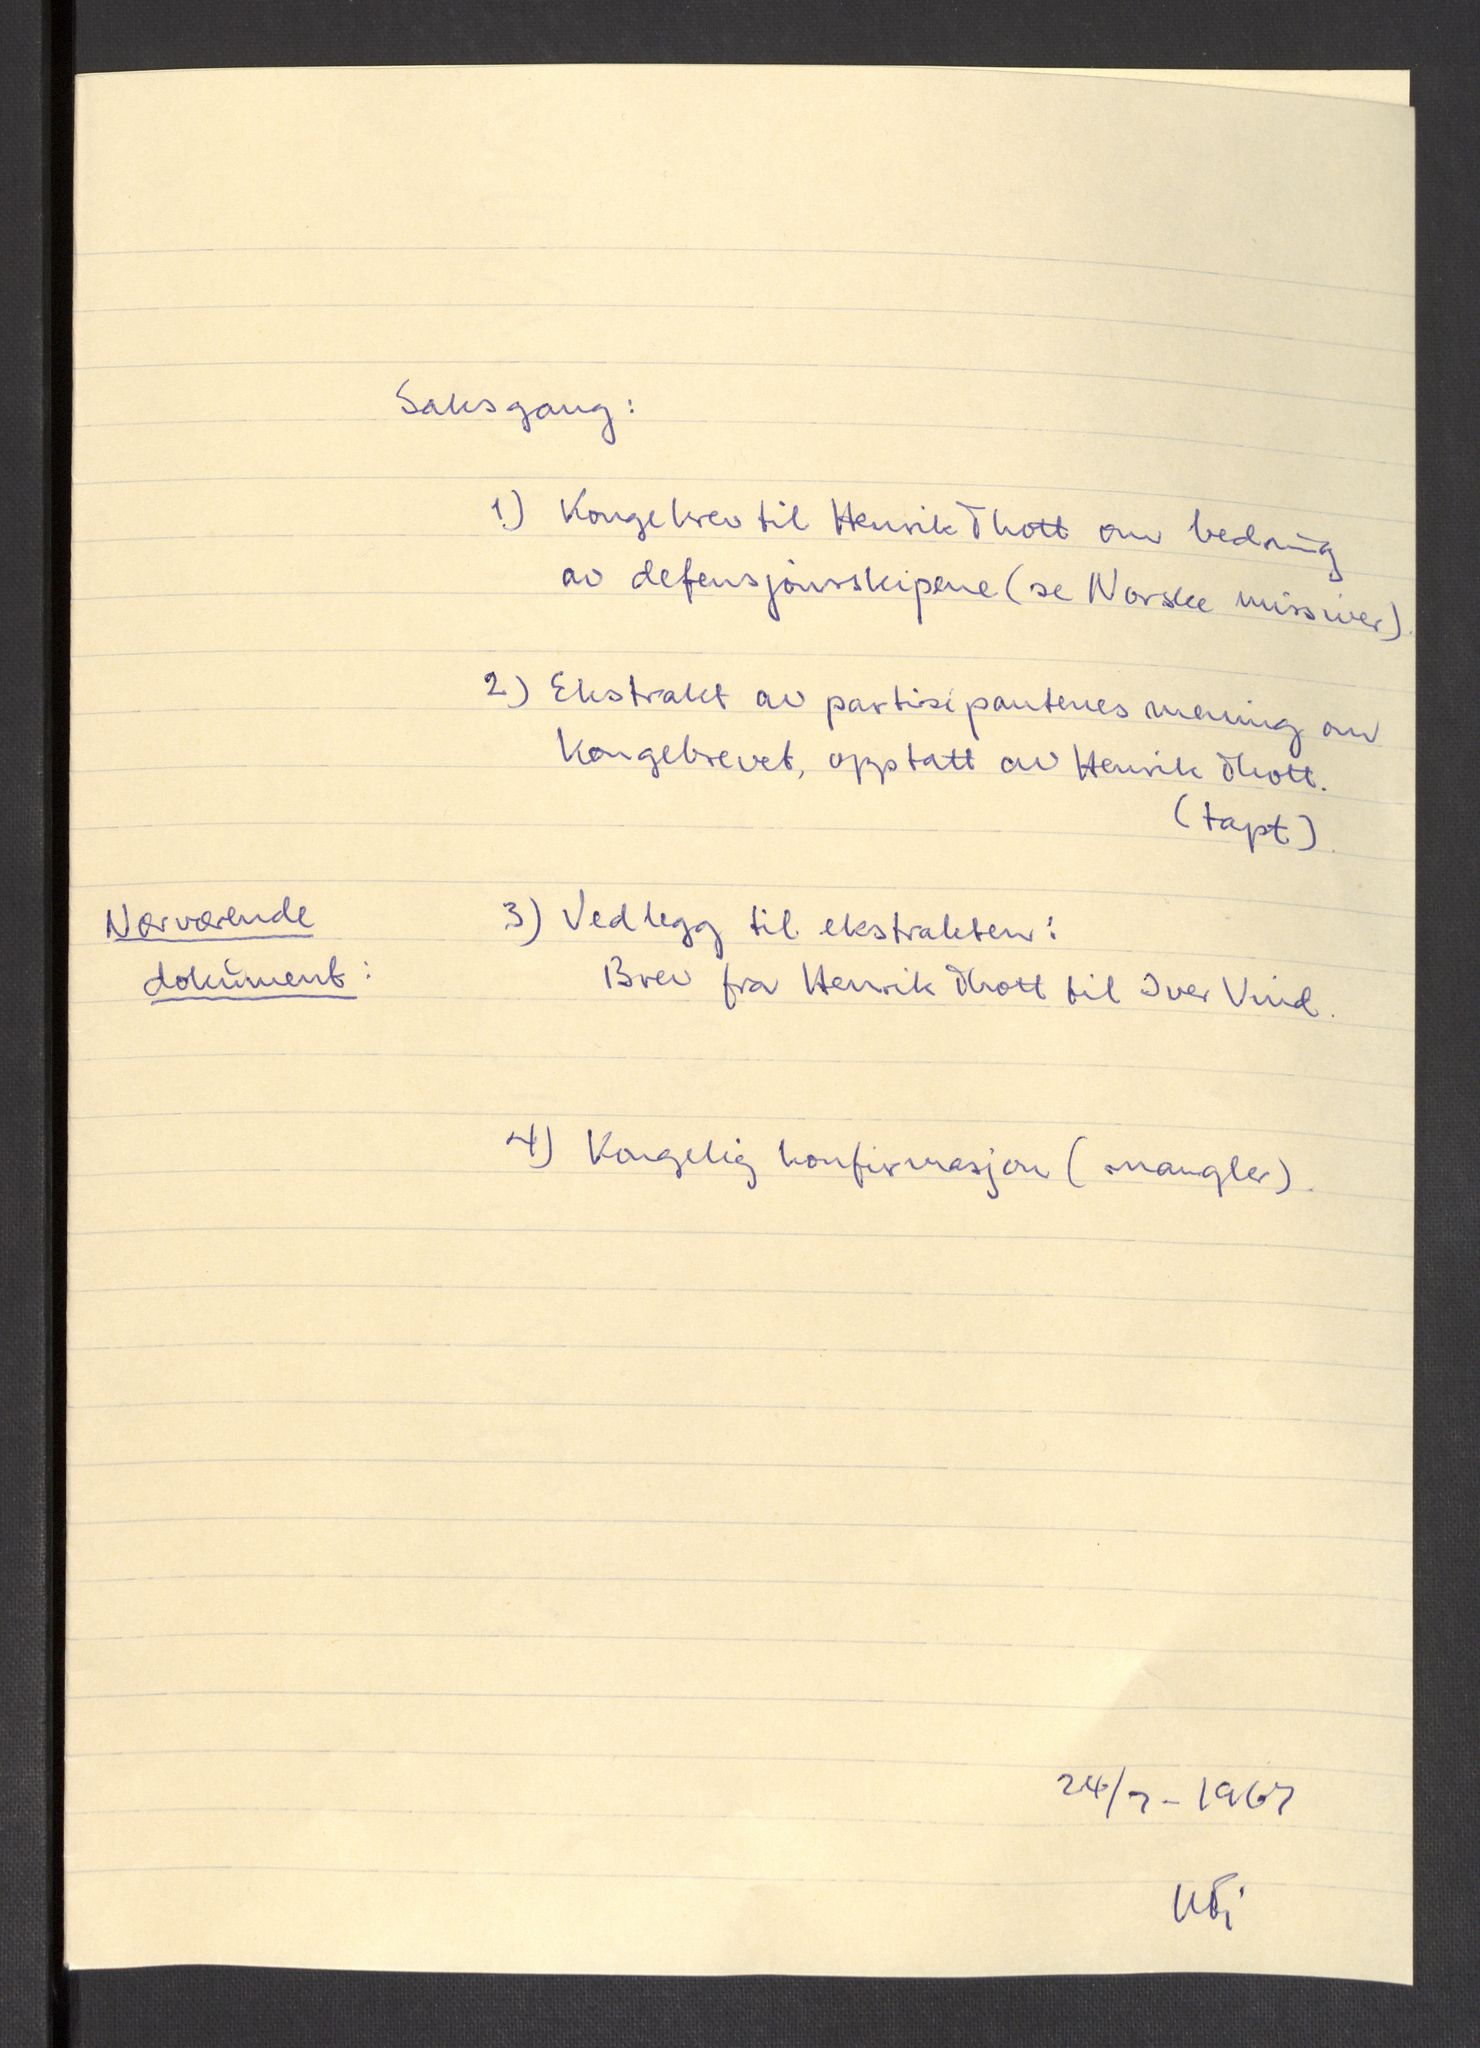 Saksgang:
1) Kongebrev til Henrik Thott om bedring
av defensjonsskipene (se Norske missiver).
2) Ekstrakt av partisipantenes mening om
kongebrevet, opptatt av Henrik Thott.
(tapt).
Nærværende
dokument:
3) Vedlegg til ekstrakten:
Brev fra Henrik Thott til Iver Vind.
4) Kongelig konfirmasjon (mangler).
24/7-1967